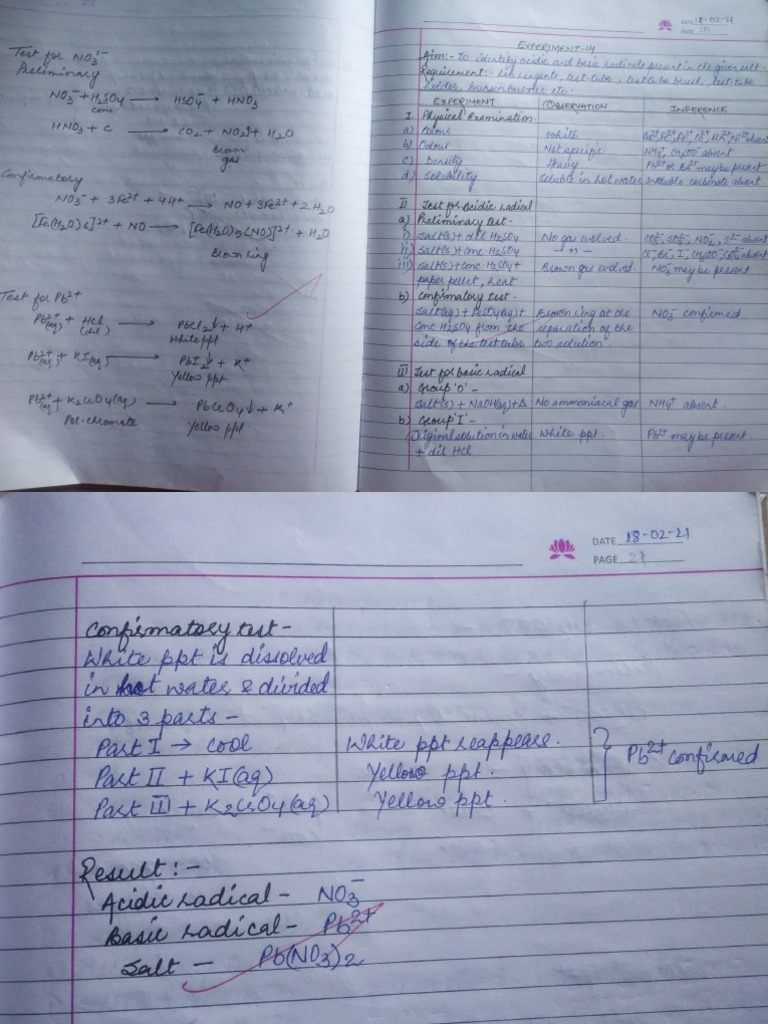 Test for NO3^1-
Preliminary
NO3^- + H2SO4 ⟶ HSO4^- + HNO3
conc
HNO3 + C ⟶ CO2 + NO2↑ + H2O
Brown
gas
Confirmatory
NO3^- + 3Fe^2+ + 4H^+ ⟶ NO + 3Fe^3+ + 2H2O
[Fe(H2O)6]^2+ + NO ⟶ [Fe(H2O)5(NO)]^2+ + H2O
Brown ring
Test for Pb^2+
Pb^2+(aq) + HCl (dil) ⟶ PbCl2↓ + H^+
White ppt
Pb^2+(aq) + KI(aq) ⟶ PbI2↓ + K^+
Yellow ppt
Pb^2+(aq) + K2CrO4(aq) ⟶ PbCrO4↓ + K^+
Pot. chromate Yellow ppt
DATE 18-02-21
PAGE
EXPERIMENT-14
Aim:- To identify acidic and basic radicals present in the given salt.
Requirement:- Lab reagents, test-tube, test tube brush, test-tube
holder, bunsen burner etc.
EXPERIMENT OBSERVATION INFERENCE
I Physical Examination
a) Colour White absent
b) Odour Not specific NH4^+, CH3COO^- absent
c) Density Heavy may be present
d) Solubility Soluble in hot water carbonate absent
II Test for Acidic Radical
a) Preliminary test-
i) Salt(s) + dil H2SO4 No gas evolved. CO3^2-, SO3^2-, NO2^-, S^2- absent
ii) Salt(s) + conc. H2SO4 —"— Cl^-, Br^-, I^-, absent
iii) Salt(s) + conc H2SO4 + Brown gas evolved. NO3^- may be present
paper pellet, heat
b) Confirmatory test-
Salt(aq) + FeSO4(aq) + Brown ring at the NO3^- confirmed.
conc H2SO4 from the separation of the
side of the test tube two solution.
III Test for basic Radical
a) Group 'O' -
Salt(s) + NaOH(aq) + Δ No ammoniacal gas NH4^+ absent.
b) Group 'I' -
Original solution in water White ppt. Pb^2+ may be present.
+ dil HCl
DATE 18-02-21
PAGE 21
Confirmatory test -
White ppt is dissolved
in hot water & divided
into 3 parts -
Part I → cool White ppt reappears.
Part II + KI(aq) Yellow ppt. Pb^2+ confirmed
Part III + K2CrO4(aq) Yellow ppt.
Result:-
Acidic radical - NO3^-
Basic radical - Pb^2+
Salt - Pb(NO3)2